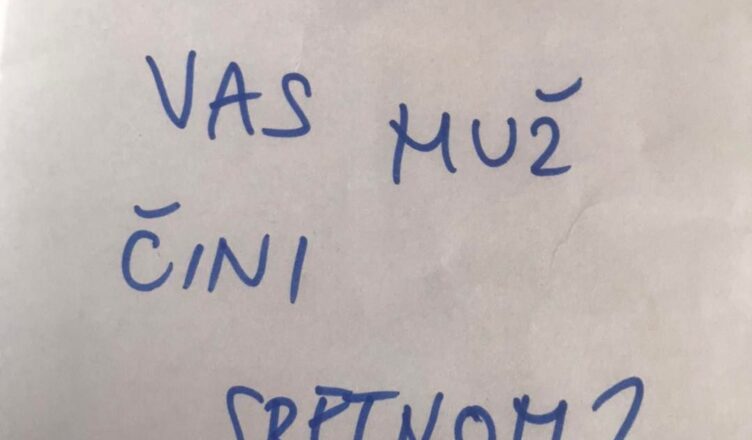 VAS MUŽ
ČINI
SRETNOM?